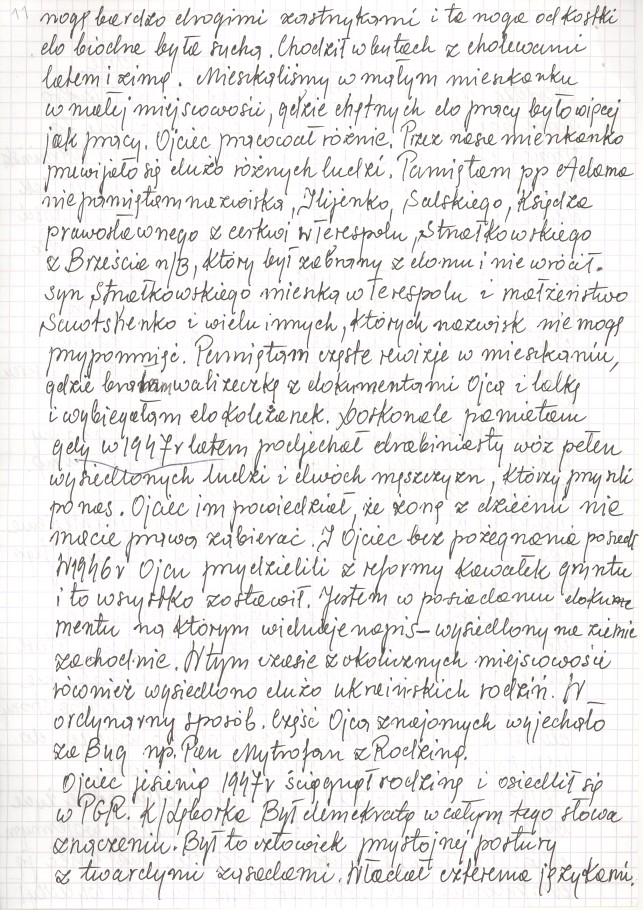 11 nogę bardzo drogimi zastrzykami i ta noga od kostki
do biodra była sucha. Chodził w butach z cholewami
latem i zimą. Mieszkaliśmy w małym mieszkanku
w małej miejscowości, gdzie chętnych do pracy było więcej
jak pracy. Ojciec pracował różnie. Przez nasze mieszkanko
przewijało się dużo różnych ludzi. Pamiętam pp Adama
nie pamiętam nazwiska, Ilijenko, Salskiego, Księdza
prawosławnego z cerkwi w Terespolu, Strzałkowskiego
z Brześcia n/B, który był zabrany z domu i nie wrócił.
syn Strzałkowskiego mieszka w Terespolu i małżeństwo
i wielu innych, których nazwisk nie mogę
przypomnieć. Pamiętam częste rewizje w mieszkaniu,
gdzie brałam walizeczkę z dokumentami Ojca i lalką
i wybiegałam do koleżanek. Doskonale pamiętam
gdy w 1947 r latem podjechał drabiniasty wóz pełen
wysiedlonych ludzi i dwóch mężczyzn, którzy przyszli
po nas. Ojciec im powiedział, że żonę z dziećmi nie
macie prawa zabierać. I Ojciec bez pożegnania poszedł
W 1946 r Ojcu przydzielili z reformy kawałek gruntu
i to wszystko zostawił. Jestem w posiadaniu doku
mentu na którym widnieje napis – wysiedlony na ziemie
zachodnie. W tym czasie z okolicznych miejscowości
również wysiedlono dużo ukraińskich rodzin. W
ordynarny sposób. Część Ojca znajomych wyjechało
za Bug np. Pan Mytrofan z Rodziną.
Ojciec jesienią 1947 r ściągnął rodzinę i osiedlił się
w PGR. k/Lęborka Był demokratą w całym tego słowa
znaczeniu. Był to człowiek przystojnej postury
z twardymi zasadami. Władał czterema językami.